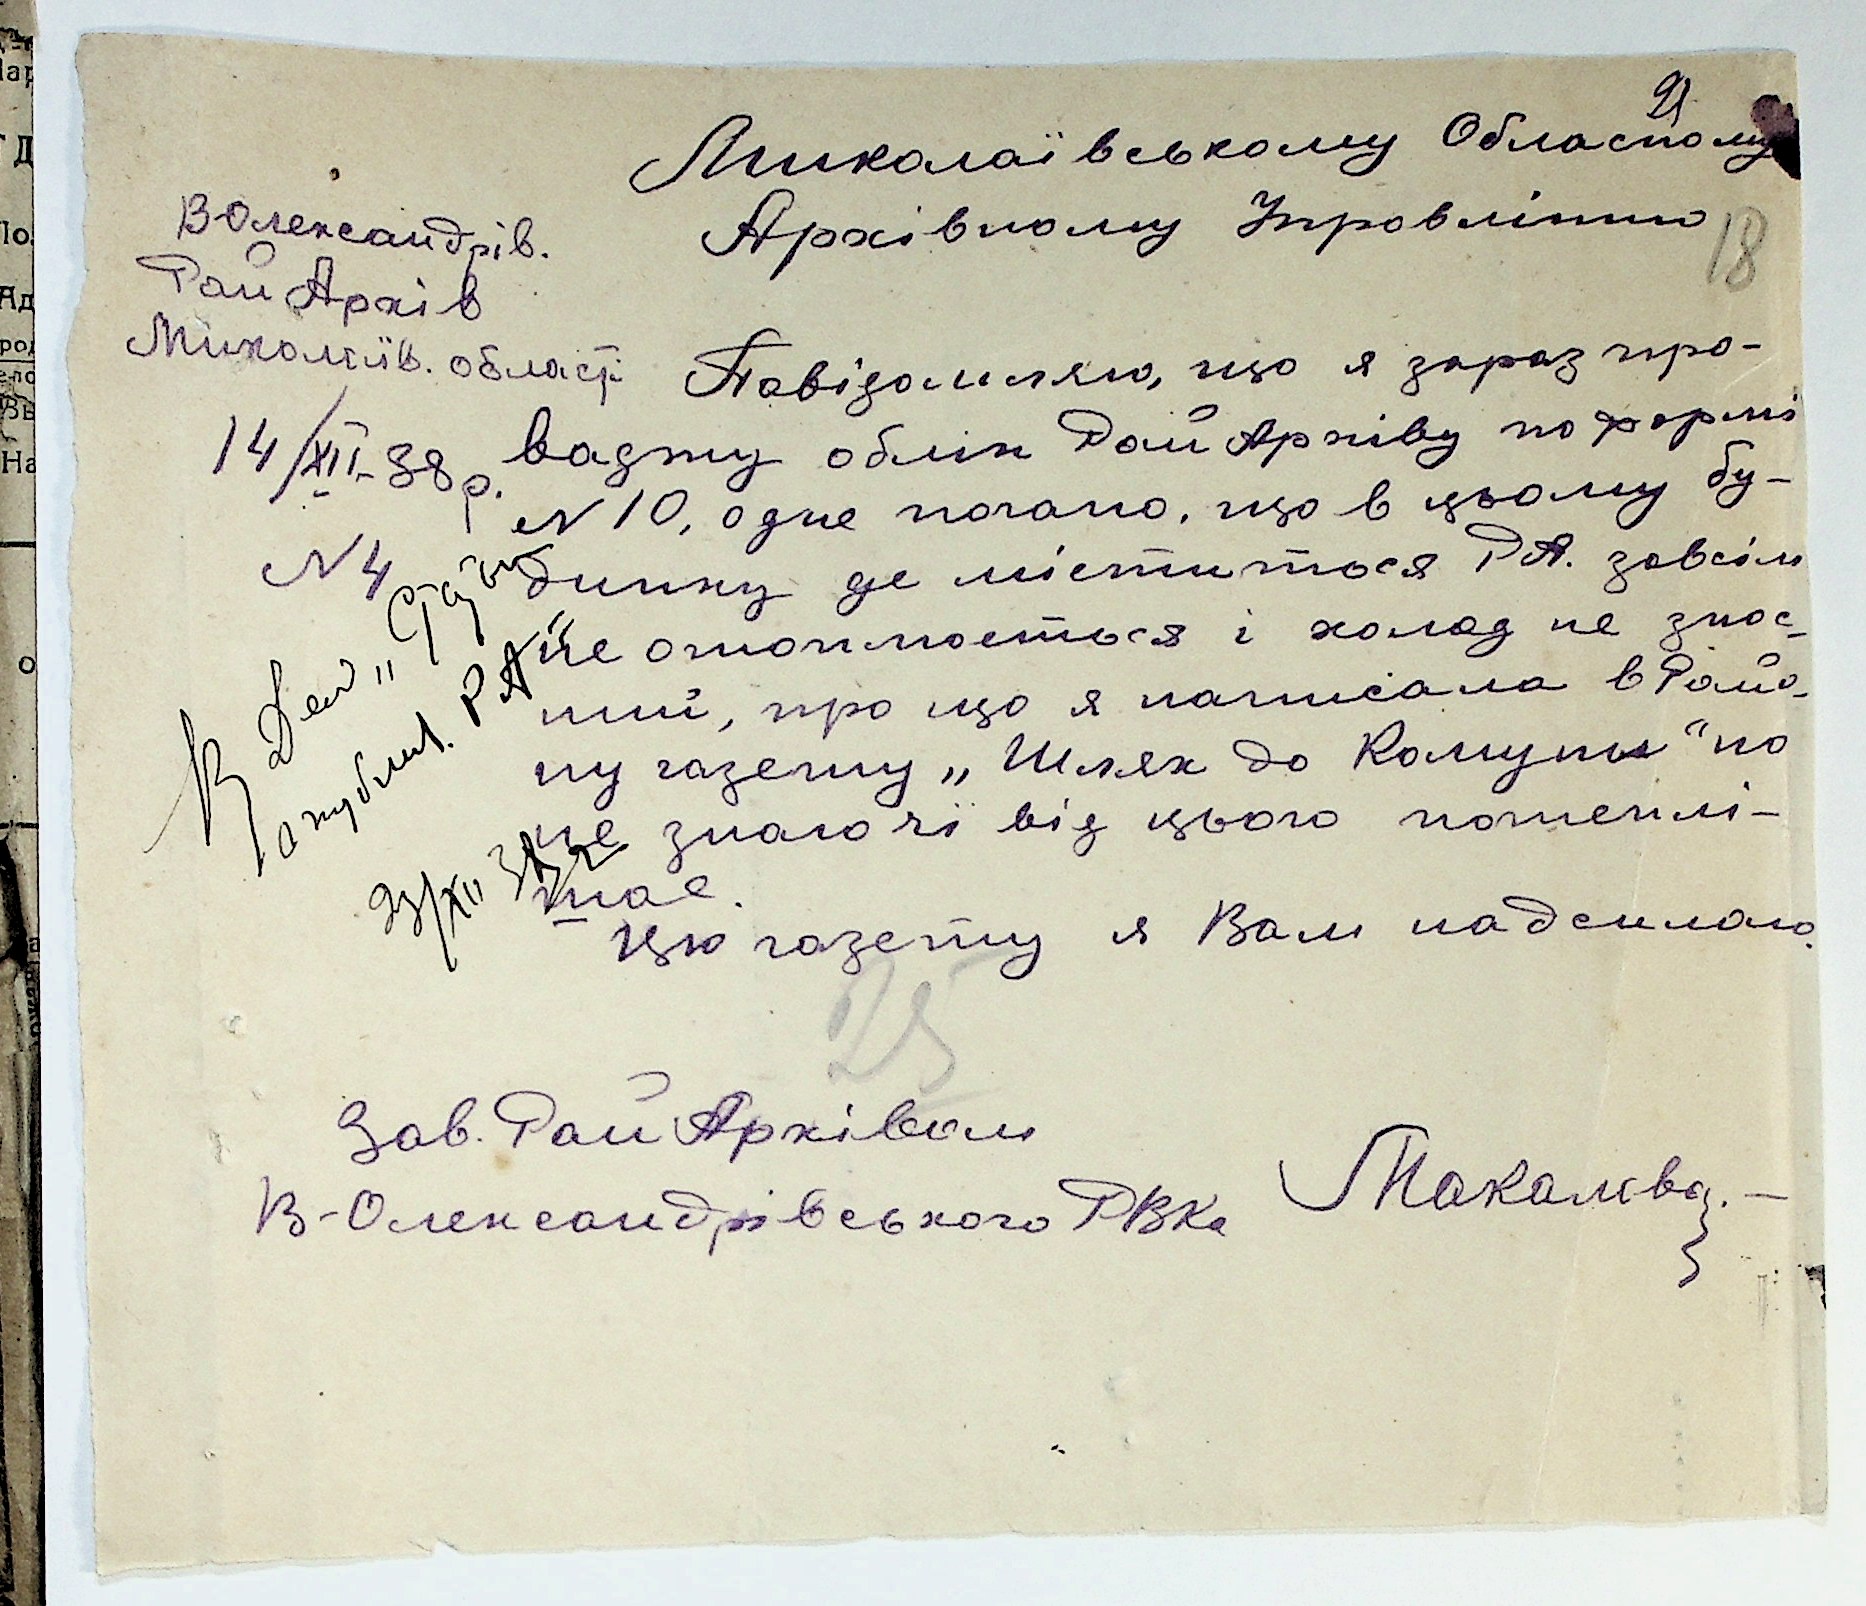 21
Миколаївському Обласному
Архівному Управлінню
18
В-Олександрів.
РайАрхів
Миколаїв. області
14/XII-38р.
N 4
Повідомляю, що я зараз про-
ваджу облік РайАрхіву по формі
N 10, одне погано, що в цьому бу-
динку де міститься РА. зовсім
не отоплюється і холод не знос-
ний, про що я написала в Райо-
ну газету „Шлях до Комуни" по
не знаючі від цього потеплі-
шає.
Цю газету я Вам надсилаю.
В дело „Статьи
опублик. РА"
23/XII 38
25
Зав. РайАрхівом
В-Олександрівського РВКа